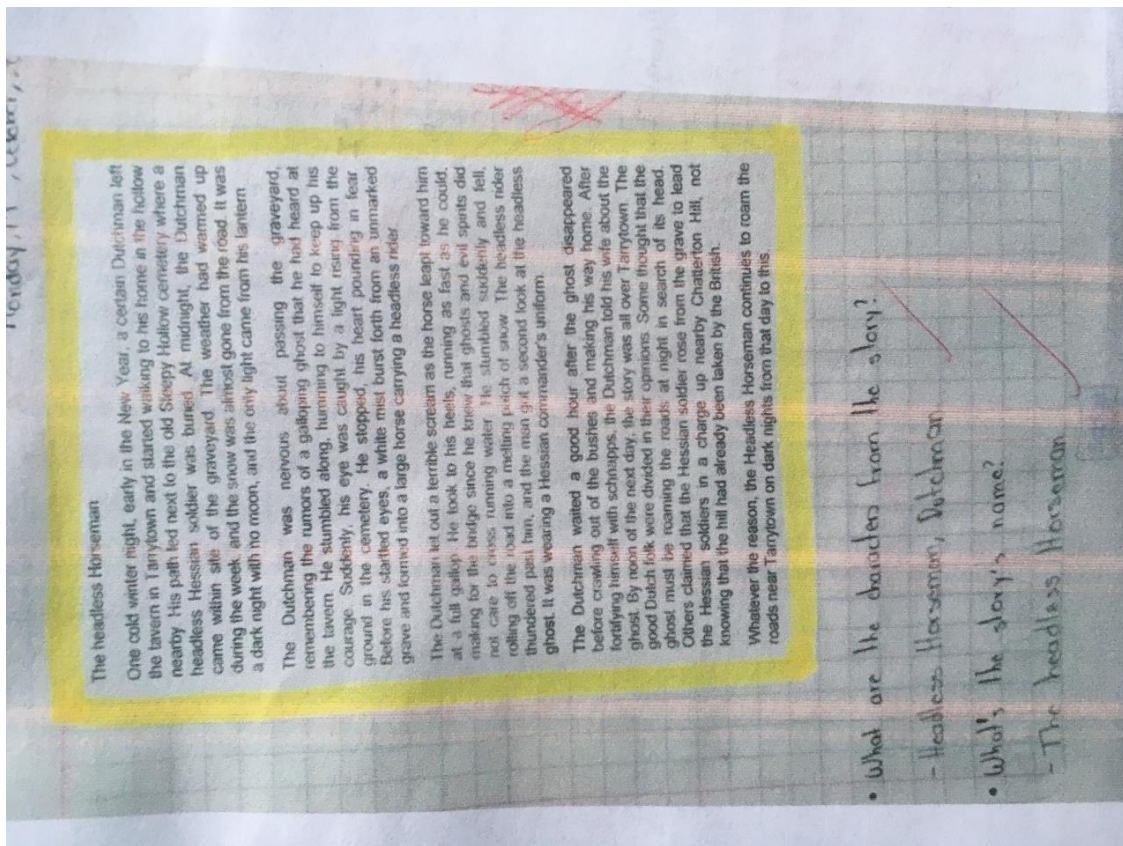 The headless Horseman
One cold winter night, early in the New Year, a certain Dutchman left
the tavern in Tarrytown and started walking to his home in the hollow
nearby. His path led next to the old Sleepy Hollow cemetery where a
headless Hessian soldier was buried. At midnight, the Dutchman
came within site of the graveyard. The weather had warmed up
during the week, and the snow was almost gone from the road. It was
a dark night with no moon, and the only light came from his lantern
The Dutchman was nervous about passing the graveyard,
remembering the rumors of a galloping ghost that he had heard at
the tavern. He stumbled along, humming to himself to keep up his
courage. Suddenly, his eye was caught by a light rising from the
ground in the cemetery. He stopped, his heart pounding in fear
Before his startled eyes, a white mist burst forth from an unmarked
grave and formed into a large horse carrying a headless rider
The Dutchman let out a terrible scream as the horse leapt toward him
at a full gallop. He took to his heels, running as fast as he could,
making for the bridge since he knew that ghosts and evil spirits did
not care to cross running water. He stumbled suddenly and fell,
rolling off the road into a melting patch of snow. The headless rider
thundered past him, and the man got a second look at the headless
ghost. It was wearing a Hessian commander's uniform
The Dutchman waited a good hour after the ghost disappeared
before crawling out of the bushes and making his way home. After
fortifying himself with schnapps, the Dutchman told his wife about the
ghost. By noon of the next day, the story was all over Tarrytown. The
good Dutch folk were divided in their opinions. Some thought that the
ghost must be roaming the roads at night in search of its head.
Others claimed that the Hessian soldier rose from the grave to lead
the Hessian soldiers in a charge up nearby Chatterton Hill, not
knowing that the hill had already been taken by the British.
Whatever the reason, the Headless Horseman continues to roam the
roads near Tarrytown on dark nights from that day to this.
• What are the characters from the story?
- Headless Horseman, Dutchman
• What's the story's name?
- The headless Horseman